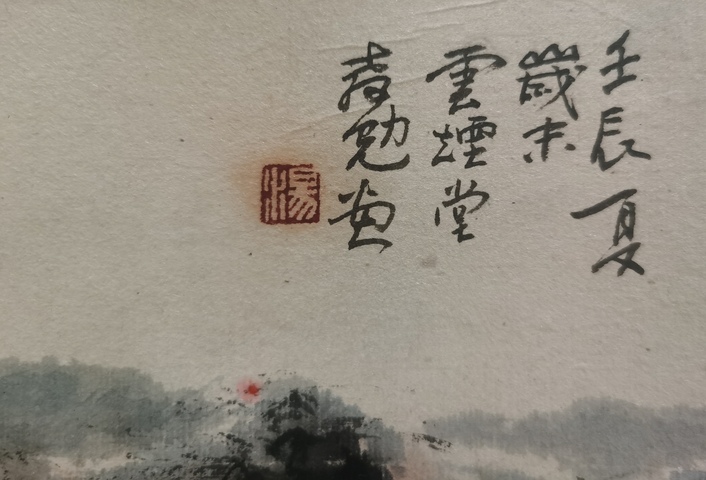 壬辰夏
歲末
雲煙堂
孝勉画
湯